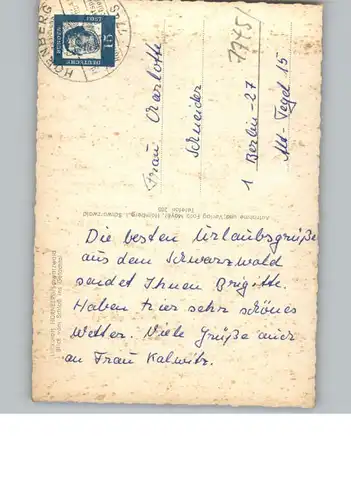 Die besten Urlaubsgrüße
aus dem Schwarzwald
sendet Ihnen Brigitte.
Haben hier sehr schönes
Wetter. Viele Grüße auch
an Frau Kalwitz.
Frau Charlotte
Schneider
1 Berlin-27
Alt-Tegel 15
7745/
HORNBERG
15
DEUTSCHE
Aufnahme und Verlag Foto Meyer, Hornberg i. Schwarzwald
Telefon
Blick vom Schloß ins